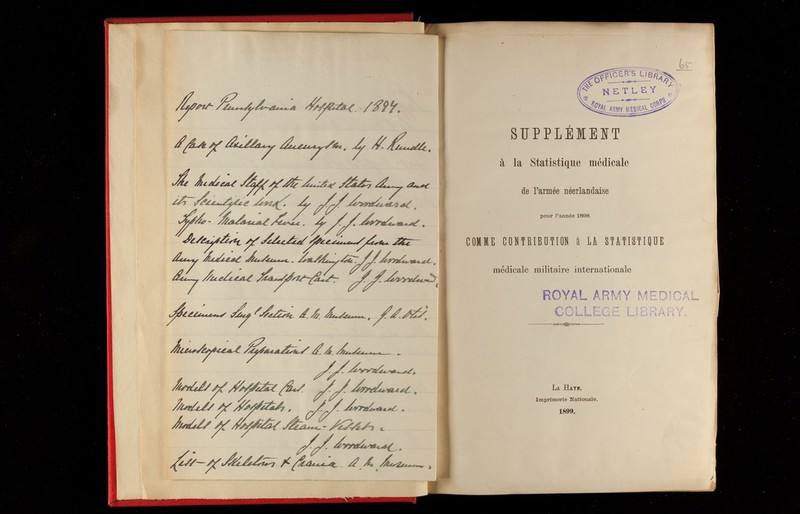 Report Pennsylvania Hospital 1897.
A Case of Axillary Aneurysm. by H. Rundle.
The Medical Staff of the United States Army and
its Scientific Work. by J. J. Woodward.
Typho-Malarial Fever. by J. J. Woodward.
Description of Selected Specimens from the
Army Medical Museum. Washington. J. J. Woodward.
Army Medical Transport Cart. J. J. Woodward.
Specimens Surgl Section A. M. Museum. G. A. Otis.
Microscopical Preparations A. M. Museum.
J. J. Woodward.
Models of Hospital Cars. J. J. Woodward.
Models of Hospitals. J. J. Woodward.
Models of Hospital Steam-Vessels.
J. J. Woodward.
List of Skeletons & Crania A. M. Museum.
65
THE OFFICER'S LIBRARY
NETLEY
ROYAL ARMY MEDICAL CORPS
SUPPLÉMENT
à la Statistique médicale
de l'armée néerlandaise
pour l'année 1898
COMME CONTRIBUTION à LA STATISTIQUE
médicale militaire internationale
ROYAL ARMY MEDICAL
COLLEGE LIBRARY.
La Haye.
Imprimerie Nationale.
1899.